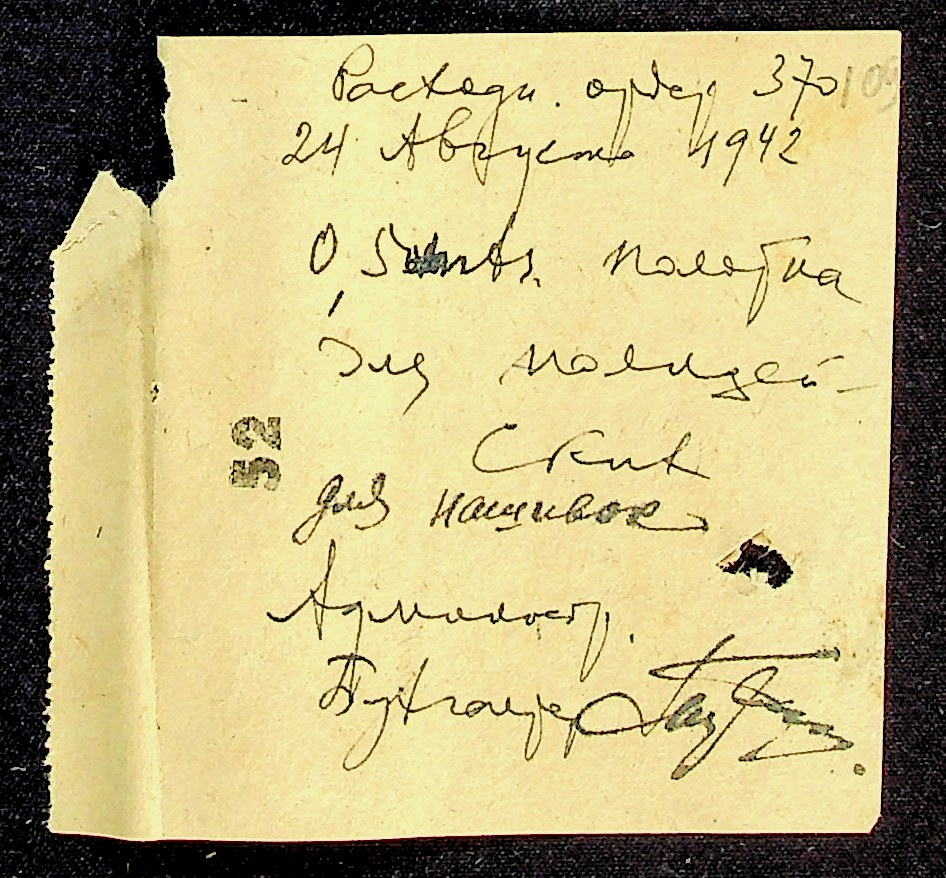 Расходн. ордер 370
109
24 Августа 1942
0,5 полотна
для полицей-
ских
для нашивок
52
Администр.
Бухгалтер